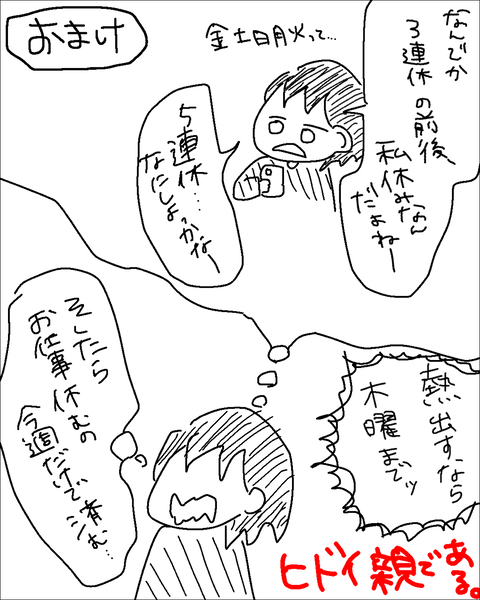 おまけ
金土日月火って…
なんでか
3連休の前後、
私休みなん
だよねー
5連休…
なにしよっかなー
熱出す、なら
木曜までッ
そしたら
お仕事休むの
今週だけで済む…
ヒドイ親である。